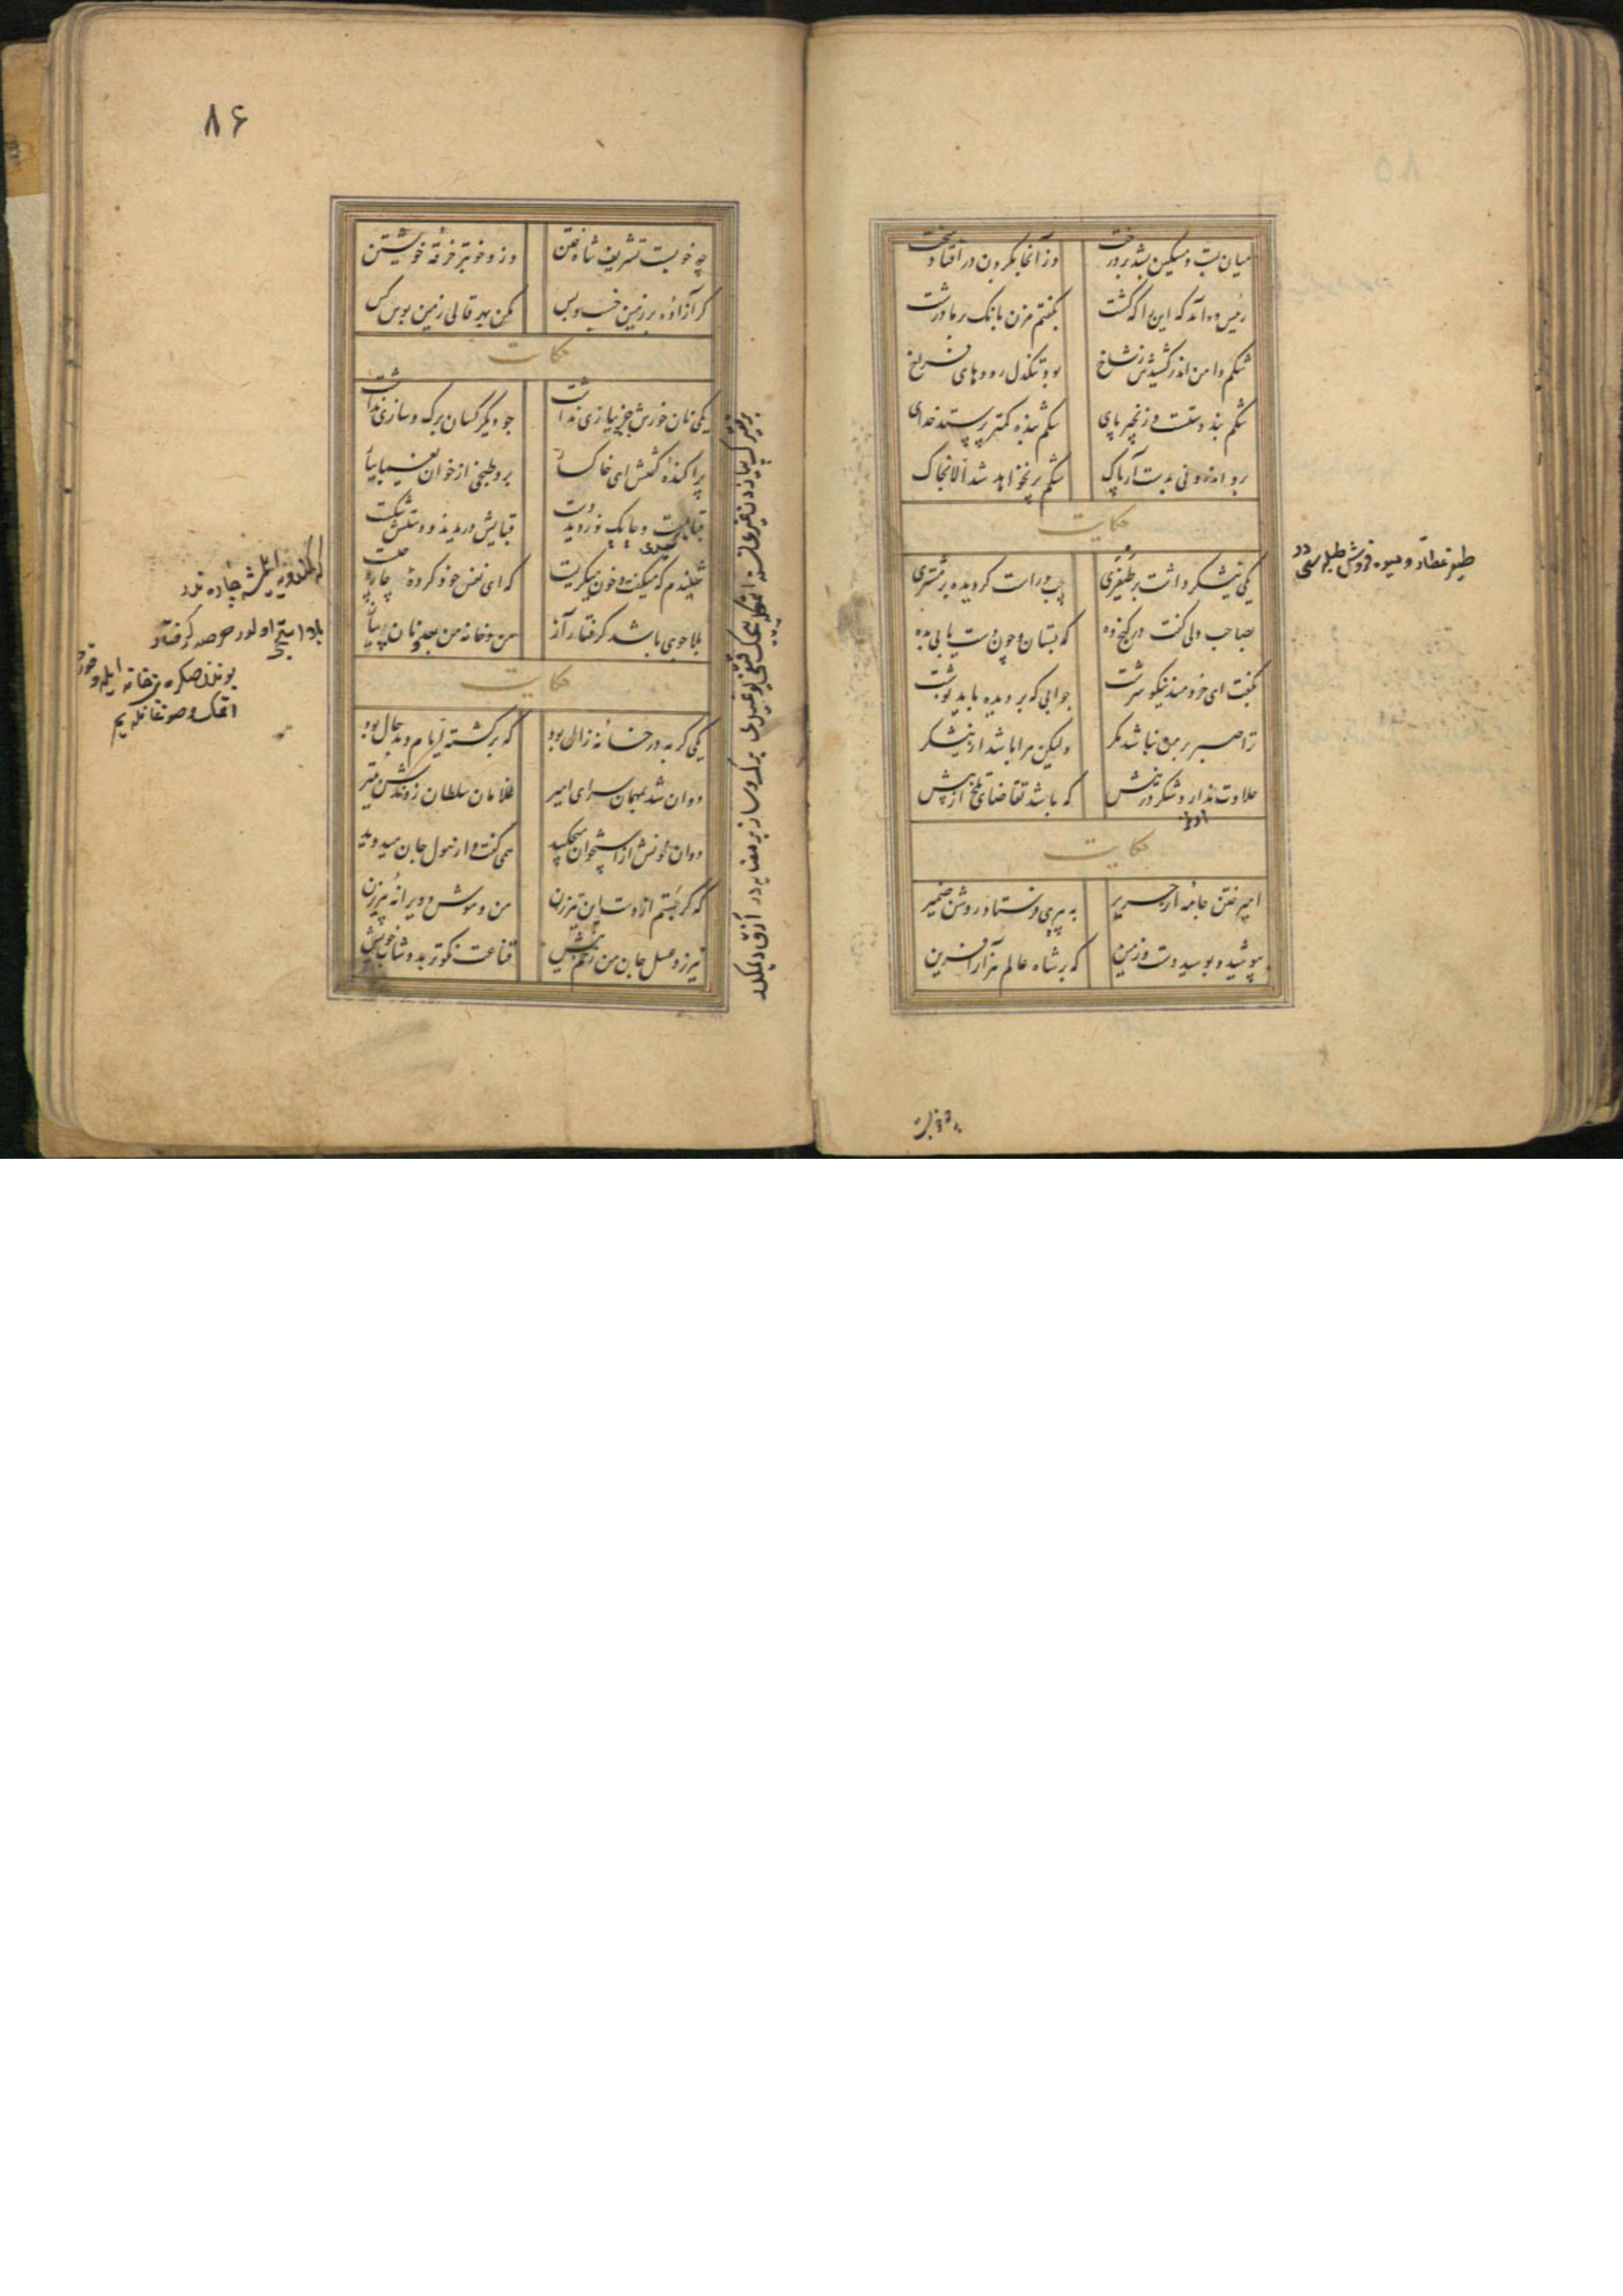 میان بست و مسکین بشد بر درخت وز آنجا بگردن در افتاد سخت
رئیس ده آمد که این را که کشت بگفتم مزن بانک بر ما درشت
شکم دامن اندر کشیدش ز شاخ بود تنکدل رودهای فراخ
شکم بند دستست و زنجیر پای شکم بنده کمتر پرستد خدای
برو اندرونی بدست آر پاک شکم پر نخواهد شد الا بخاک
حکایت
یکی نیشکر داشت بر طیفری چپ و راست کردیده بر مشتری
بصاحب دلی کفت در کنج ده که بستان و چون دست یابی بده
بگفت ای خردمند نیکو سرشت جوابی که بر دیده باید نوشت
ترا صبر بر من نباشد مکر ولیکن مرا باشد از نیشکر
حلاوت ندارد شکر در نیش که باشد تقاضای تلخ از پیش
حکایت
امیر ختن جامه از حریر به پیری فرستاد روشن ضمیر
بپوشید و بوسید دست و زمین که بر شاه عالم هزار آفرین
طیفر عطار و میوه فروش طبله سی در
۸۶
چه خوبست تشریف شاه ختن وزو خوبتر خرقه خویشتن
کر آزاده بر زمین خسب و بس مکن بهر قالی زمین بوس کس
حکایت
یکی نان خورش جز پیازی نداشت چو دیکر کسان برک و سازی نداشت
پراکنده کفتش ای خاکسار برو طبخی از خوان یغما بیار
قبا بست و چابک نوردید دست قبایش دریدند و دستش شکست
شنیدم که میکفت و خون میکریست که ای نفس خود کرده را چاره چیست
بلا جوی باشد کرفتار آز من و خانه من بعد و نان و پیاز
حکایت
یکی کربه در خانه زال بود که برکشته ایام و بد حال بود
دوان شد بمهمان سرای امیر غلامان سلطان زدندش بتیر
دوان خونش از استخوان میچکید همی کفت و از هول جان میدوید
که کر جستم از دست این تیرزن من و موش و ویرانه پیرزن
نیرزد عسل جان من زخم نیش قناعت نکوتر بدوشاب خویش